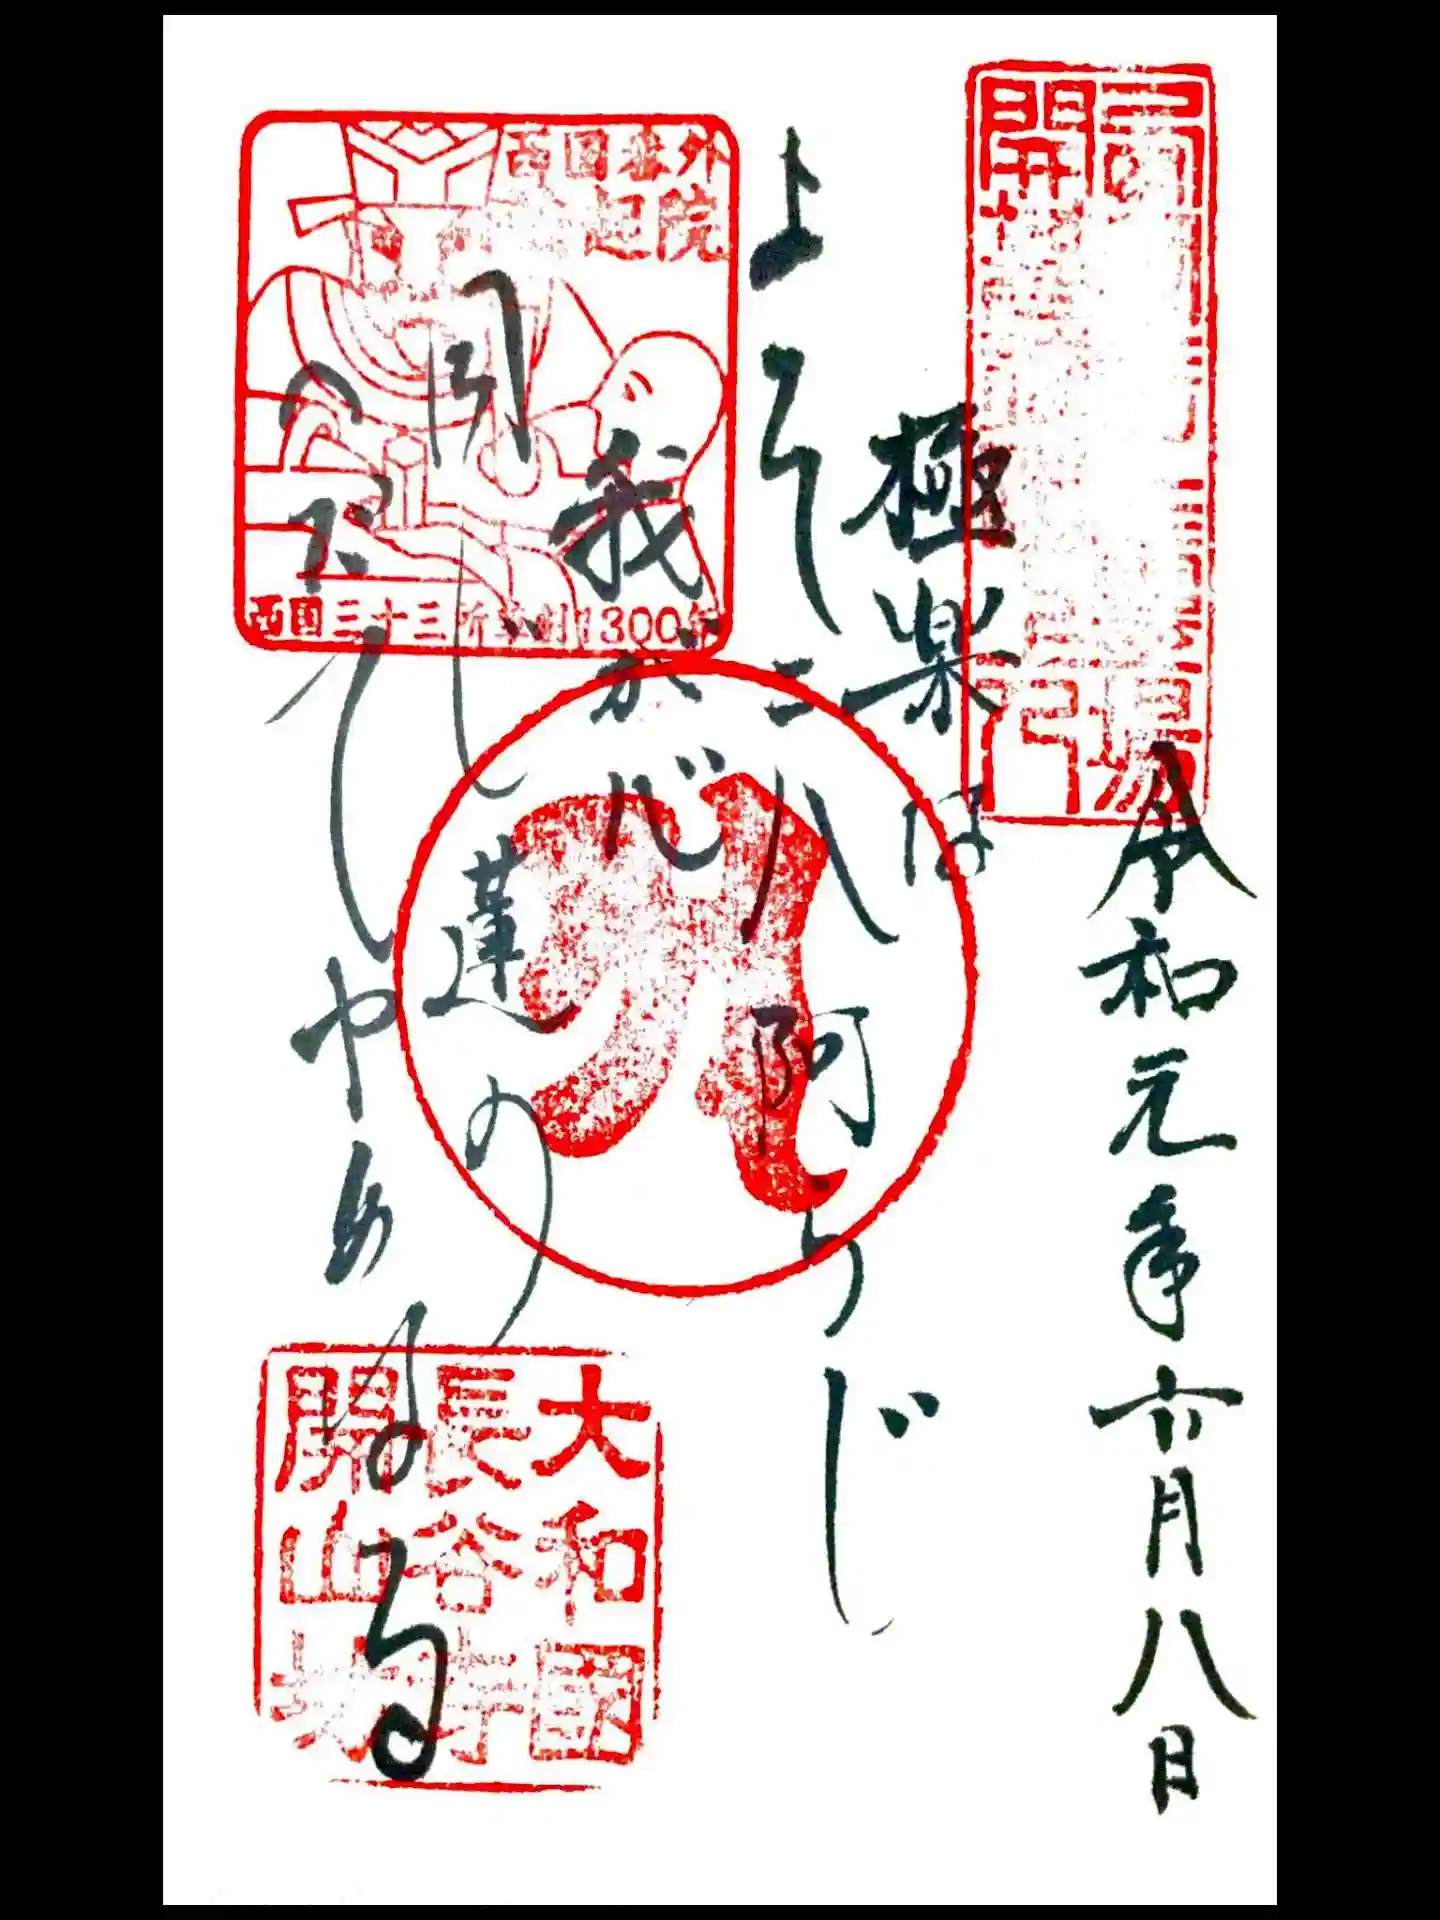 令和元年六月八日
極楽は
よそニハ阿らじ
我が心
同じ蓮の
へだてやはある
西国番外
起院
西国三十三所草創1300年
大和國
長谷寺
開山坊